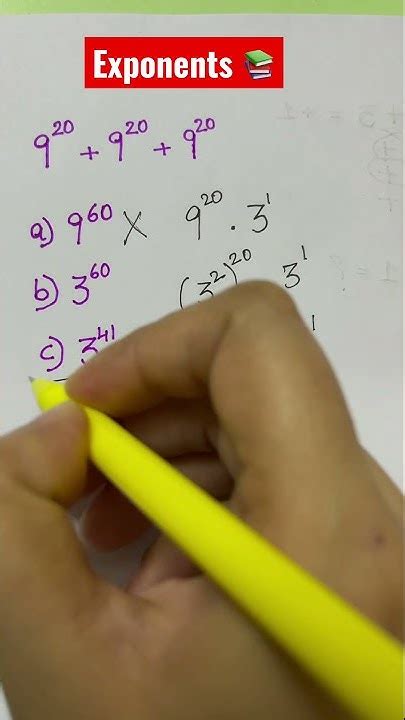 Exponents 📚
9²⁰ + 9²⁰ + 9²⁰
a) 9⁶⁰ X 9²⁰ · 3¹
b) 3⁶⁰ (3²)²⁰ 3¹
c) 3⁴¹ 1